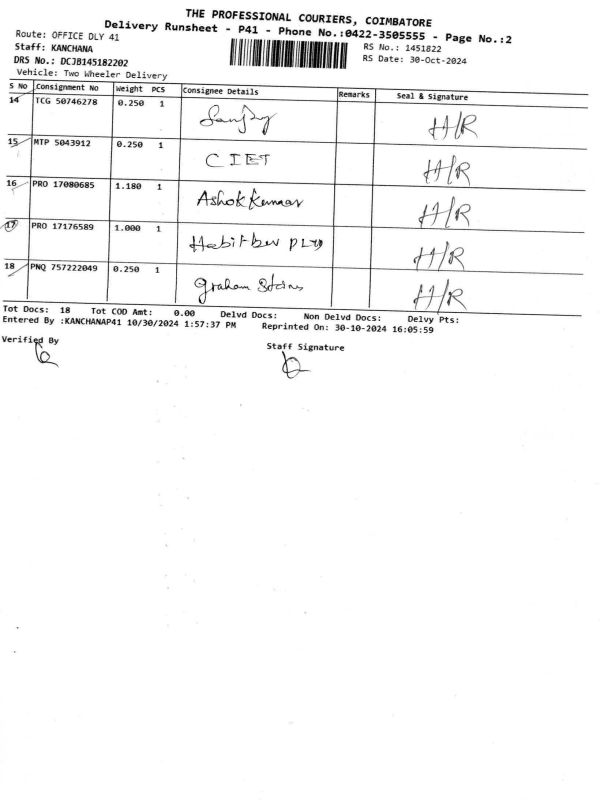 THE PROFESSIONAL COURIERS, COIMBATORE
Delivery Runsheet - P41 - Phone No.:0422-3505555 - Page No.:2
Route: OFFICE DLY 41
RS No.: 1451822
Staff: KANCHANA
RS Date: 30-Oct-2024
DRS No.: DCJB145182202
Vehicle: Two Wheeler Delivery
S No Consignment No Weight PCS Consignee Details Remarks Seal & Signature
14 TCG 50746278 0.250 1 H/R
15 MTP 5043912 0.250 1 CIET H/R
16 PRO 17080685 1.180 1 Ashok Kumar H/R
17 PRO 17176589 1.000 1 H/R
18 PNQ 757222049 0.250 1 Graham H/R
Tot Docs: 18 Tot COD Amt: 0.00 Delvd Docs: Non Delvd Docs: Delvy Pts:
Entered By :KANCHANAP41 10/30/2024 1:57:37 PM Reprinted On: 30-10-2024 16:05:59
Verified By
Staff Signature